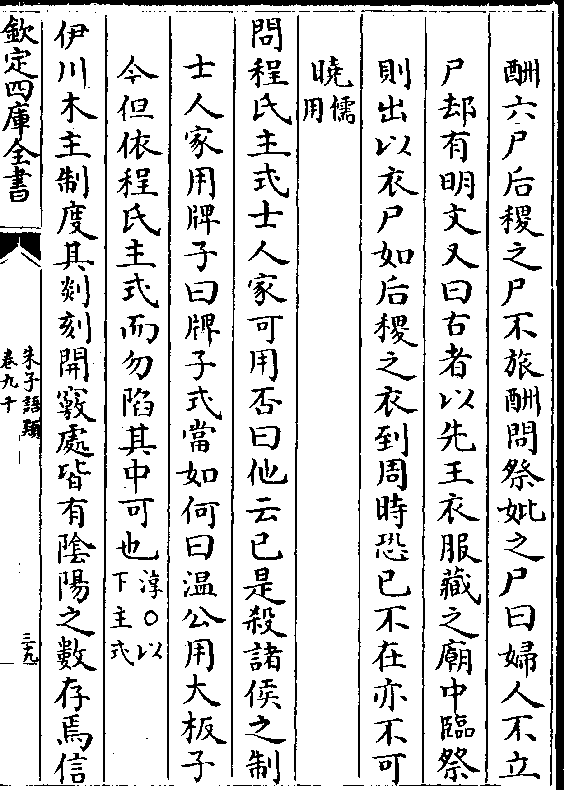 酬六尸后稷之尸不旅酬問祭妣之尸曰婦人不立
尸却有明文又曰古者以先王衣服藏之廟中臨祭
則出以衣尸如后稷之衣到周時恐已不在亦不可
曉儒用
問程氏主式士人家可用否曰他云已是殺諸侯之制
士人家用牌子曰牌子式當如何曰溫公用大板子
今但依程氏主式而勿陷其中可也淳〇以下主式
伊川木主制度其剡刻開竅處皆有陰陽之數存焉信
欽定四庫全書
朱子語類
卷九十
三九